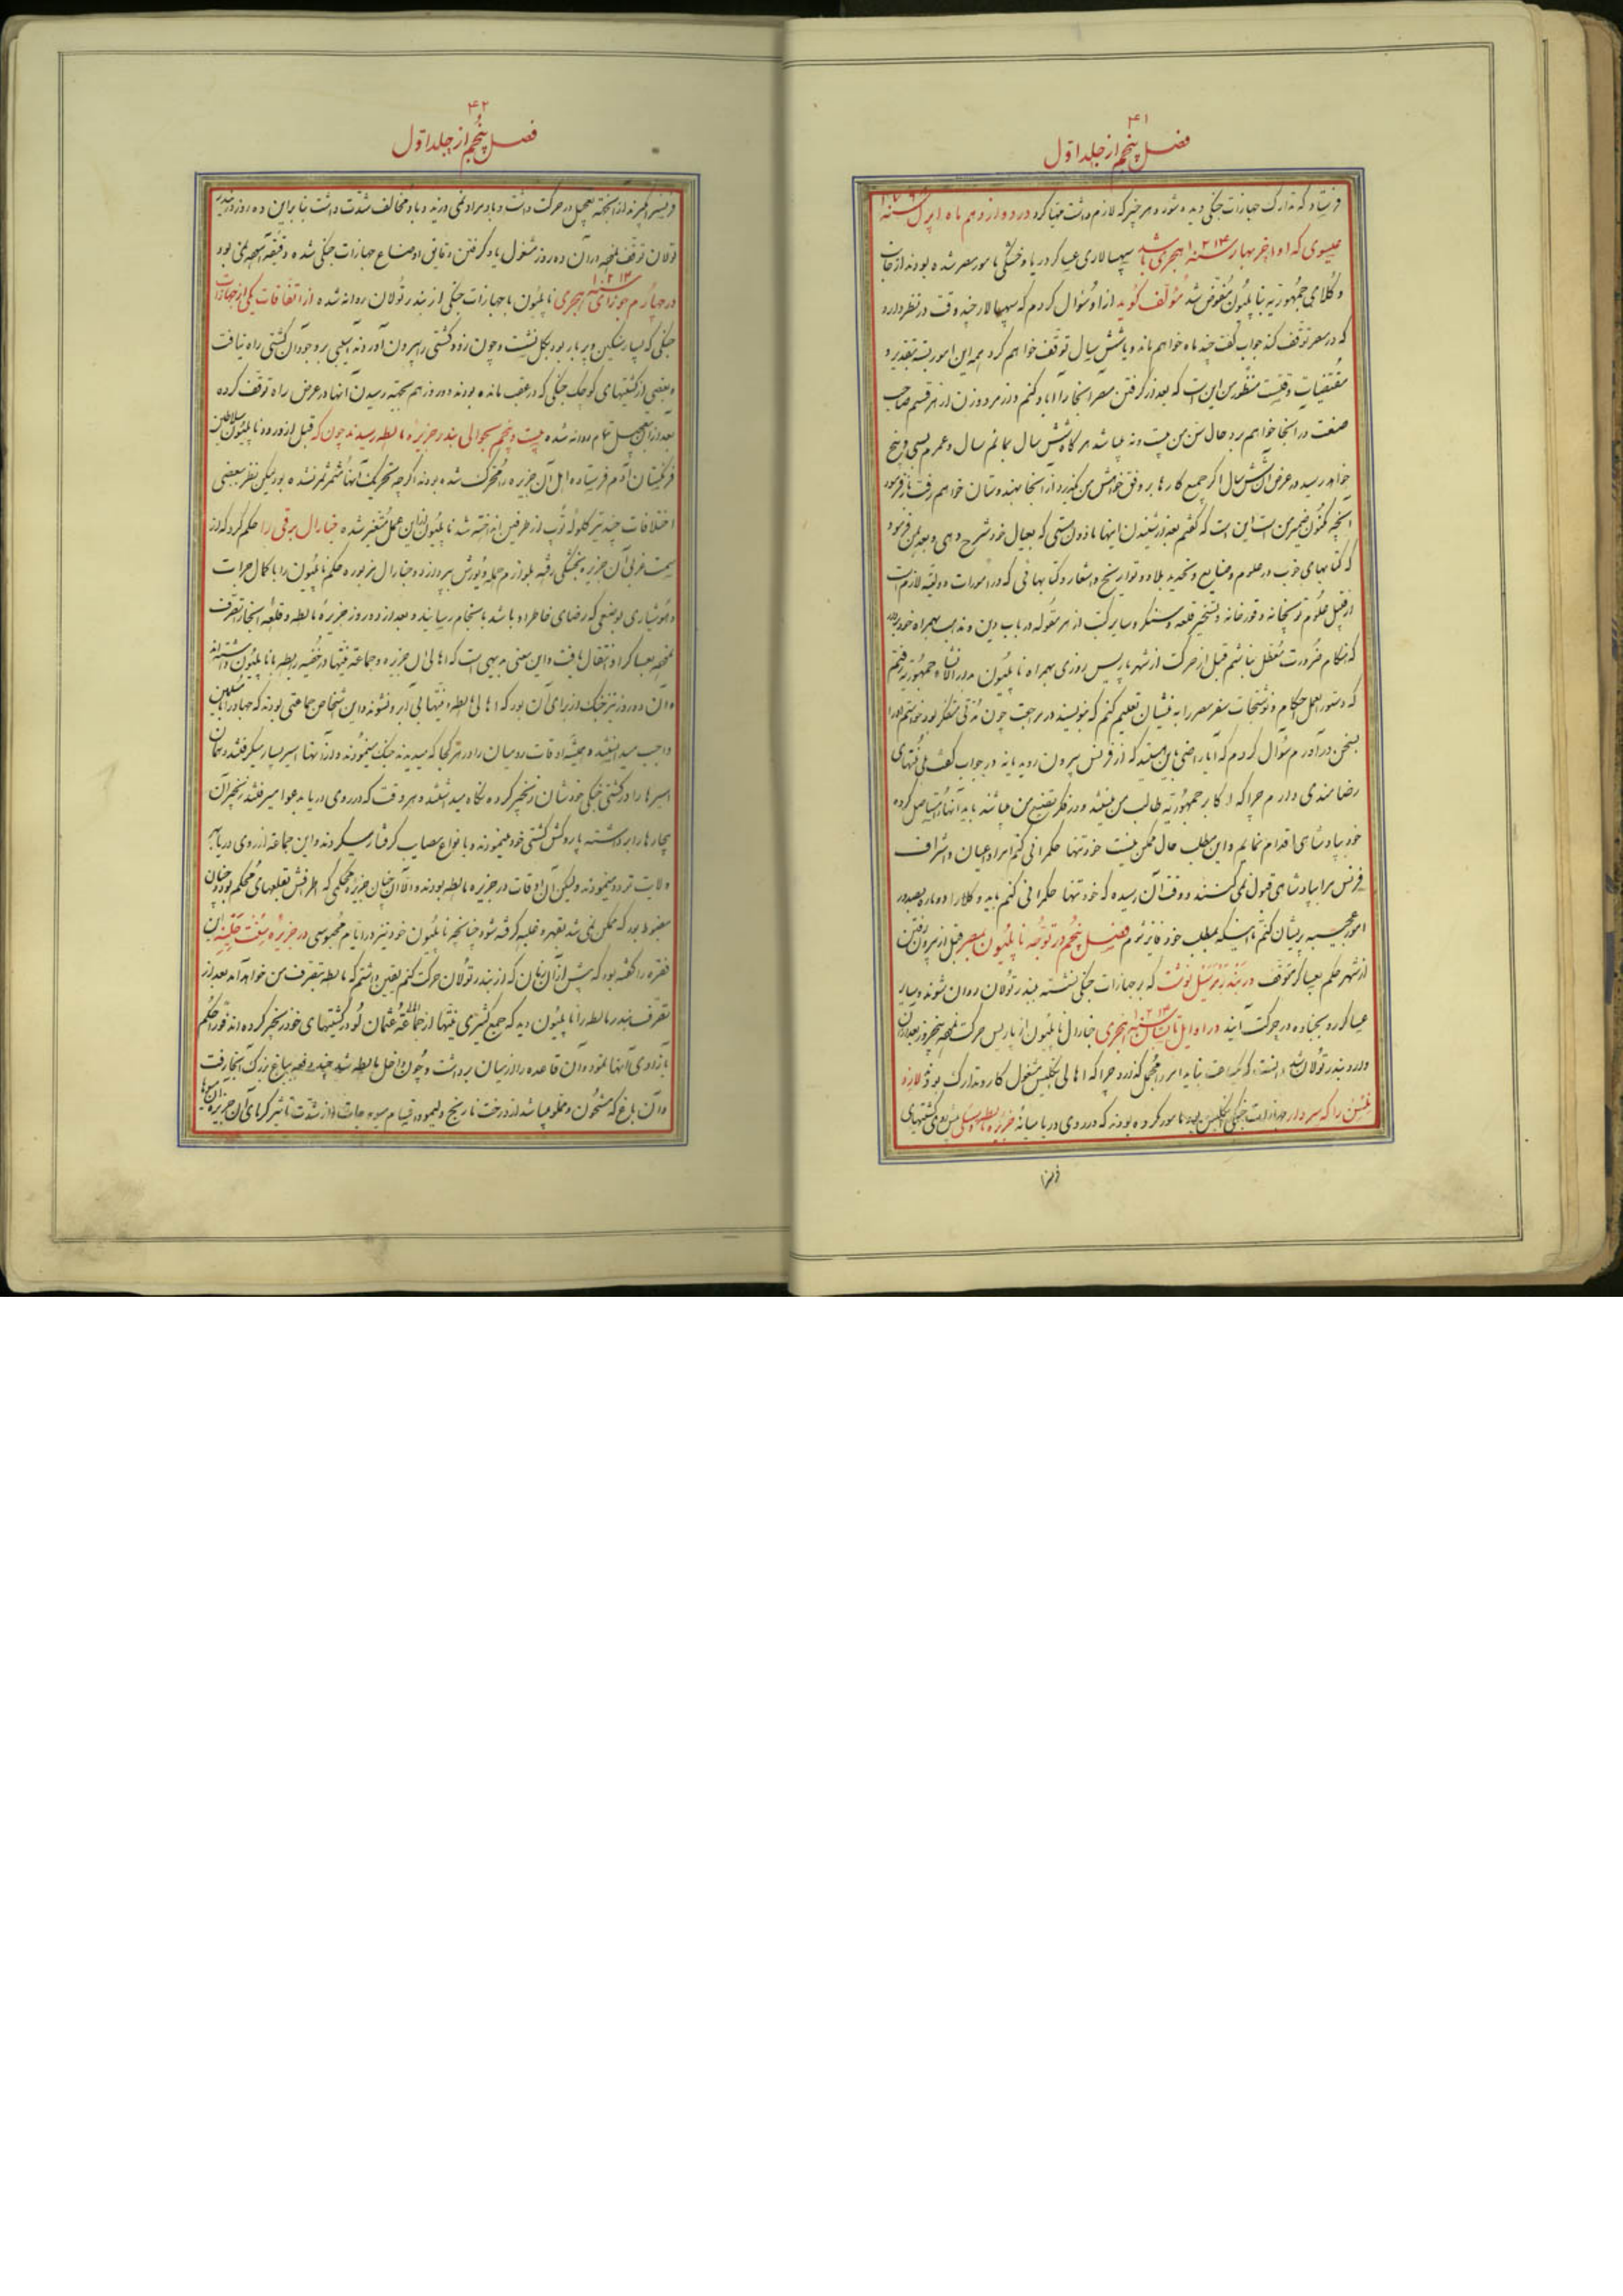 ۴۱
فصل پنجم از جلد اول
فرستاد که تدارک جهازات جنگی دیده شود و هر چیز که لازم داشت مهیا کرد در دوازدهم ماه اپرل سنه
عیسوی که اواخر بهار سنه ۱۲۱۳ هجری باشد سپهسالاری عساکر دریا و خشکی مامور مصر شده بودند از جانب
وکلای جمهوریه بناپلیون مفوض شد مؤلف گوید از او سؤال کردم که سپهسالار چند وقت در نظر دارد
که در مصر توقف کند جواب گفت چند ماه خواهم ماند و یا شش سال توقف خواهم کرد همه این امور بسته بتقدیر و
مقتضیات وقتست منظور من این است که بعد از گرفتن مصر آنجا را آباد کنم و از مرد و زن از هر قسم صاحب
صنعت در آنجا خواهم برد حال سن من بیست و نه میباشد هر گاه شش سال بمانم سال و عمرم بسی و پنج
خواهد رسید در عرض آن شش سال اگر جمیع کارها بر وفق خواهش من بگذرد از آنجا بهندوستان خواهم رفت باز فرمود
آنچه مکنون ضمیر من است این است که گفتم بعد از شنیدن اینها ماذون هستی که بعیال خود شرح دهی و بعد بمن فرمود
که کتابهای خوب در علوم و صنایع و تحدید بلاد و تواریخ و اشعار و کتابهائی که در امورات دولتیه لازم است
از قبیل علوم توپخانه و قورخانه و تسخیر قلعه و سنگر و سایر کتب از هر مقوله در باب دین و مذاهب بهمراه خود بردار
که هنگام ضرورت معطل نباشم قبل از حرکت از شهر پاریس روزی بهمراه ناپلیون بدیوانخانه جمهوریه رفتم
که دستورالعمل احکام و نوشتجات سفر مصر را به منشیان تعلیم کنم که بنویسند در مراجعت چون مدتی متفکر بود خواستم او را
بسخن در آورم سؤال کردم که آیا راضی باین هستید که از فرنس بیرون روید یا نه در جواب گفت بلی منتهای
رضامندی دارم چرا که اکابر جمهوریه طالب من نیستند و در فکر تضییع من میباشند باید آنها را مستأصل کرده
خود بپادشاهی اقدام نمایم و این مطلب حال ممکن نیست خود تنها حکمرانی کنم امرا و اعیان و اشراف
فرنس مرا بپادشاهی قبول نمی کنند و وقت آن رسیده که خود تنها حکمرانی کنم باید وکلا را دوباره بصدور
امور عجیبه پریشان کنم تا اینکه بمطلب خود فایز شوم فصل پنجم در توجه ناپلیون بمصر قبل از بیرون رفتن
از شهر حکم بعساکر متوقف در بندر مرسیل نوشت که بر جهازات جنگی نشسته ببندر تولان روان شوند و سایر
عساکر رو بجاده در حرکت آیند در اوایل تابستان سنه ۱۲۱۳ هجری جنارال ناپلیون از پاریس حرکت نمود پنج روز بعد از آن
وارد بندر تولان شد دانست که یکساعت نباید امر را مهمل گذارد چرا که اهالی انگلیس مشغول کار و تدارک بودند لارد
نلسن را که سردار جهازات جنگی انگلیس بود مامور کرده بودند که در روی دریا میانه جزیره مالطه و سسلی پیش روی کشتیهای
فرنس
۴۲
فصل پنجم از جلد اول
فرنس را بگیرند از اینجهة تعجیل در حرکت داشت و باد مراد نمی وزید و باد مخالف شدت داشت بنابراین ده روز در بندر
تولان توقف نمود در آن ده روز مشغول یاد گرفتن دقایق اوضاع جهازات جنگی شده دقیقهٔ آسوده نمی بود
در چهارم جوزای سنه ۱۲۱۳ هجری ناپلیون با جهازات جنگی از بندر تولان روانه شده از اتفاقات یکی از جهازات
جنگی که بسیار سنگین و پر بار بود بگل نشست و چون زود کشتی را بیرون آوردند آسیبی بر وجود آن کشتی راه نیافت
و بعضی از کشتیهای کوچک جنگی که در عقب مانده بودند دو روز هم بجهة رسیدن آنها در عرض راه توقف کرده
بعد از آن بتعجیل تمام روانه شده بیست و پنجم بحوالی بندر جزیره مالطه رسیدند چون که قبل از ورود ناپلیون سلاطین
فرنگستان آدم فرستاده اهل آن جزیره را محرک شده بودند اگرچه تحریک آنها مثمر ثمر نشده بود لیکن نظر ببعضی
اختلافات چند تیر گلوله توپ از طرفین انداخته شد ناپلیون از این عمل متغیر شده جنارال برقی را حکم کرد که از
سمت غربی آن جزیره بخشکی رفته بلوازم حمله و یورش پردازد و جنارال مزبور حکم ناپلیون را با کمال جرأت
و هوشیاری بوضعی که رضای خاطر او باشد بانجام رسانید و بعد از دو روز جزیره مالطه و قلعه آنجا را تصرف
نموده بعساکر او انتقال یافت و این معنی بدیهی است که اهالی آن جزیره و جماعة نیتها در خفیه رابطه با ناپلیون داشته‌اند
و آن دو روز نیز جنگ از برای آن بود که اهالی مالطه و نیتها بی آبرو نشوند و این اشخاص جماعتی بودند که جهاد را با مسلمین
واجب میدانستند و همیشه اوقات رومیان را در هر کجا که میدیدند جنگ مینمودند و از آنها اسیر بسیار میگرفتند و همان
اسیرها را در کشتی جنگی خودشان زنجیر کرده نگاه میداشتند و هر وقت که در روی دریا بدعوا میرفتند زنجیر آن
بیچاره‌ها را برداشته پاروکش کشتی خود مینمودند و بانواع مصایب گرفتار میکردند و این جماعة از روی دریا به
ولایت تردد مینمودند ولیکن آن اوقات در جزیره مالطه بودند والا آن چنان جزیره محکمی که اطرافش بقلعهای محکم بود چنان
مضبوط بود که ممکن نمی شد بقهر و غلبه گرفته شود چنانچه ناپلیون خود نیز در ایام محبوسی در جزیره سنت هلینه این
فقره را گفته بود که پیش از آن زمان که از بندر تولان حرکت کنم یقین داشتم که مالطه بتصرف من خواهد آمد بعد از
تصرف بندر مالطه را ناپلیون دید که جمع کثیری نیتها از جماعهٔ عثمانلو در کشتیهای خود زنجیر کرده‌اند فوراً حکم
بآزادی آنها نمود و آن قاعده را از میان برداشت و چون داخل مالطه شد چند دفعه بباغ بزرگ آنجا رفت
و آن باغ که مشحون و مملو میباشد از درخت نارنج و لیمو و اقسام میوه جات از شدت تأثیر گرمای آن جزیره